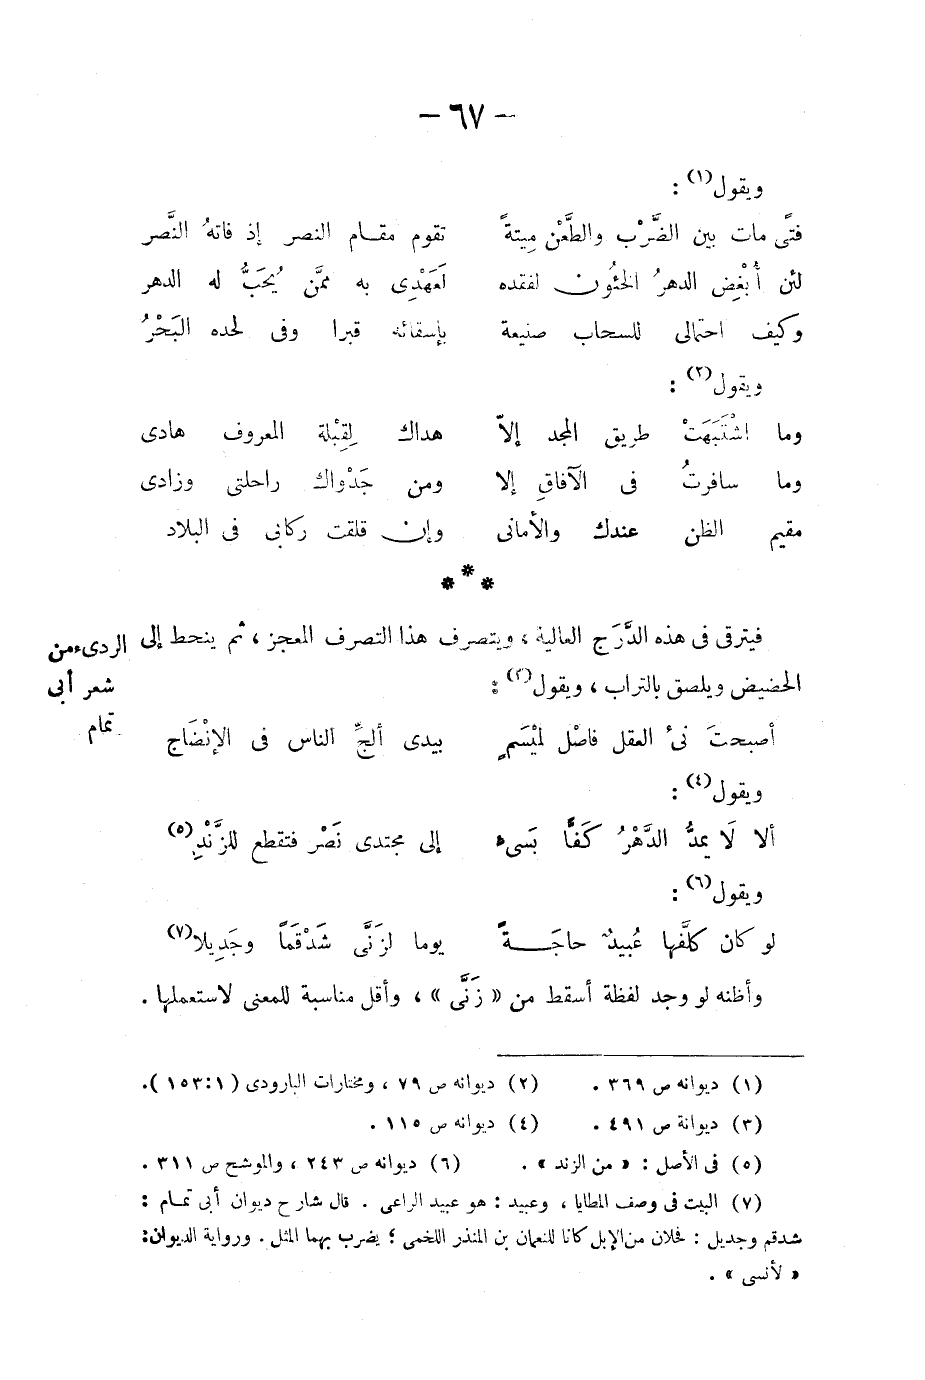 - ٦٧ -
ويقول(١) :
فتًى مات بين الضَّرْب والطَّعْن مِيتةً تقوم مقام النصر إذ فاتهُ النَّصر
لئن أُبْغِض الدهرُ الخئُون لفقده لَعَهْدِى به ممَّن يُحَبُّ له الدهر
وكيف احتمالى للسحاب صنيعة بإسقائه قبرا وفى لحده البَحْرُ
ويقول(٢) :
وما اشْتَبَهَتْ طريق المجد إلاّ هداك لِقِبْلة المعروف هادى
وما سافرتُ فى الآفاقِ إلا ومن جَدْواك راحلتى وزادى
مقيم الظن عندك والأمانى وإن قلقت ركابى فى البلاد
* * *
فيترقى فى هذه الدَّرَج العالية ، ويتصرف هذا التصرف المعجز ، ثم ينحط إلى
الحضيض ويلصق بالتراب ، ويقول(٣) :
الردىء من
شعر أبى
تمام
أصبحتَ نىءَ العقل فاصْل لميْسَمٍ بيدى ألجِّ الناس فى الإنْضَاج
ويقول(٤) :
ألا لَا يمدُّ الدَّهْرُ كَفًّا بَسىء إلى مجتدى نَصْر فتقطع للزَّنْدِ(٥)
ويقول(٦) :
لو كان كلَّفها عُبيدٌ حاجَــةً يوما لزَنَّى شَدْقَمَاً وجَدِيلا(٧)
وأظنه لو وجد لفظة أسقط من « زَنَّى » ، وأقل مناسبة للمعنى لاستعملها .
(١) ديوانه ص ٣٦٩ . (٢) ديوانه ص ٧٩ ، ومختارات البارودى ( ١ : ١٥٣ ).
(٣) ديوانة ص ٤٩١ . (٤) ديوانه ص ١١٥ .
(٥) فى الأصل : « من الزند » . (٦) ديوانه ص ٢٤٣ ، والموشح ص ٣١١ .
(٧) البيت فى وصف المطايا ، وعبيد : هو عبيد الراعى . قال شارح ديوان أبى تمام :
شدقم وجديل : فحلان من الإبل كانا للنعمان بن المنذر اللخمى ؛ يضرب بهما المثل . ورواية الديوان:
« لأنسى » .